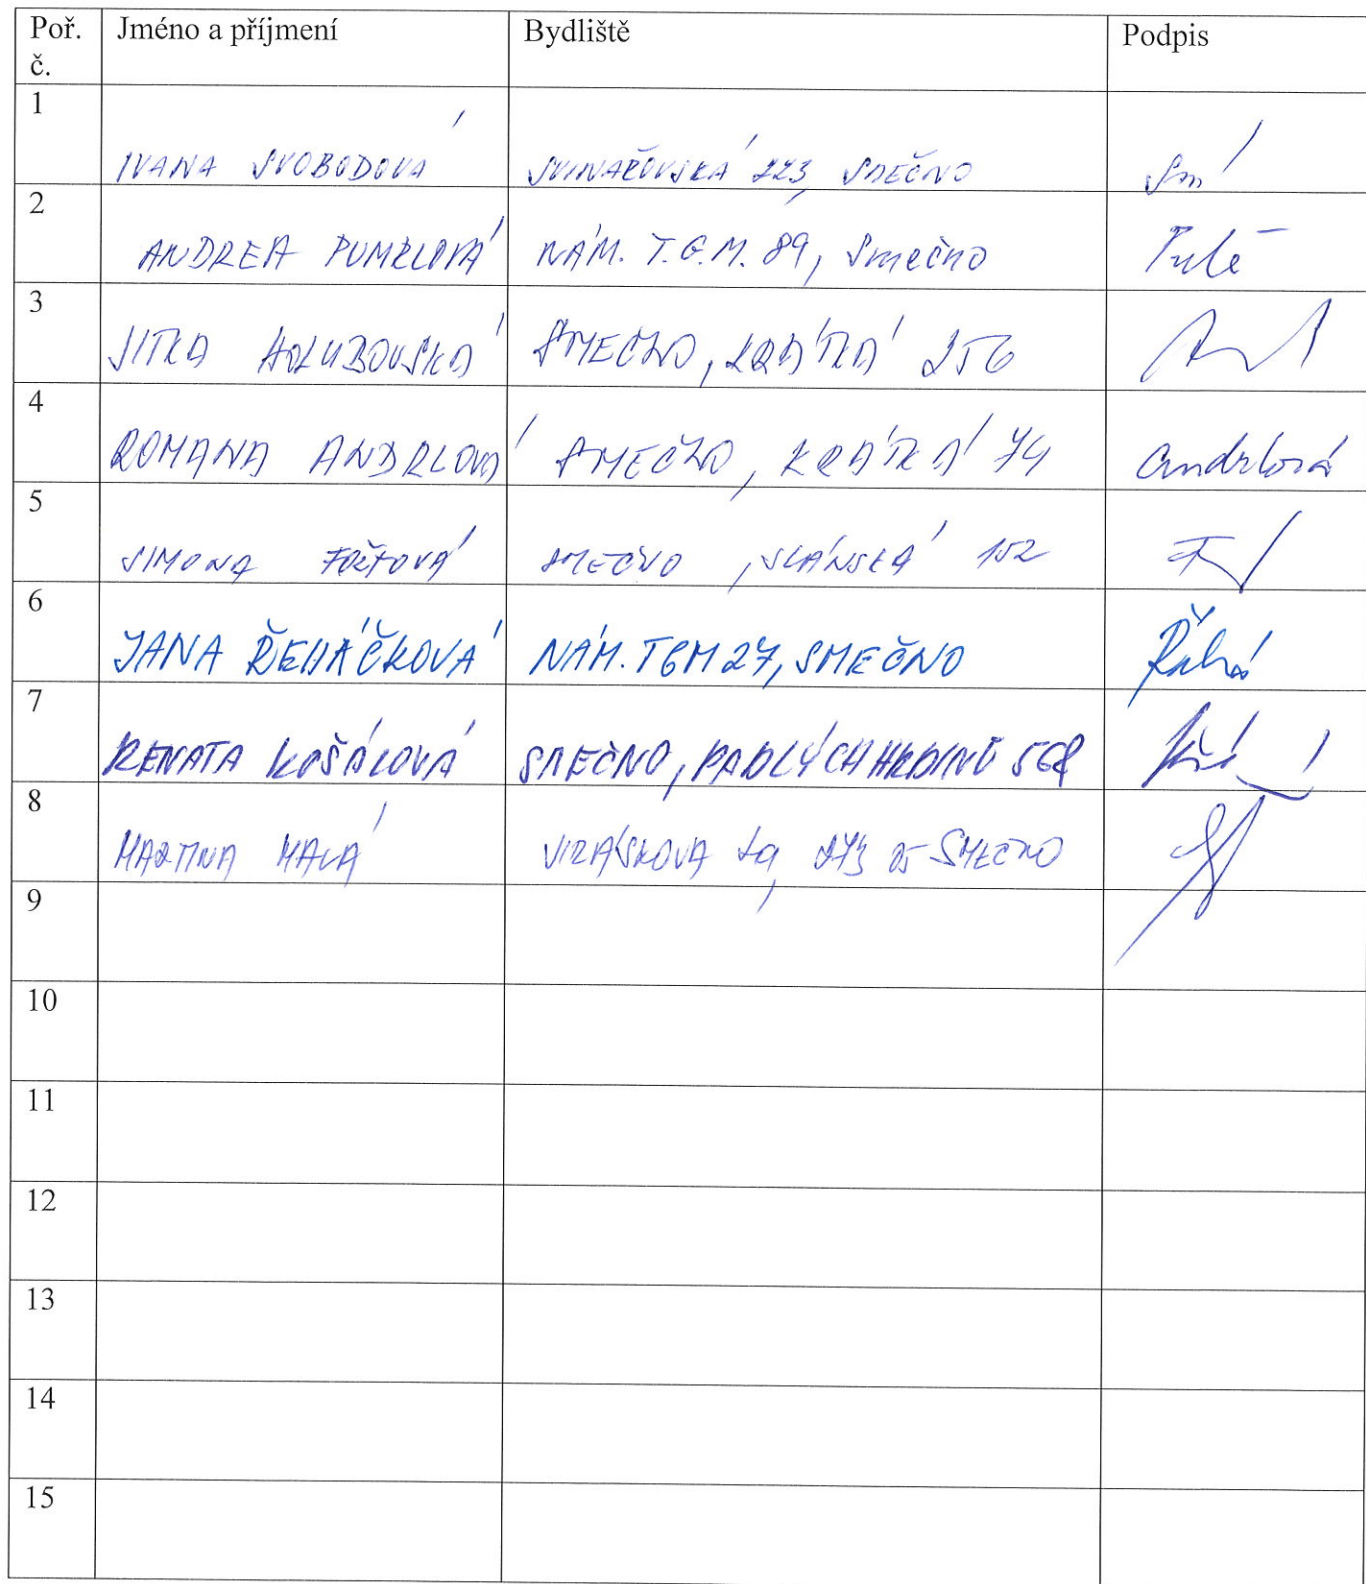 Poř. č. Jméno a příjmení Bydliště Podpis
1 IVANA SVOBODOVÁ SVINAŘOVSKÁ 223, SMEČNO
2 ANDREA PUMRLOVÁ NÁM. T.G.M. 89, Smečno
3 JITKA HOLUBOVSKÁ SMEČNO, KRÁTKÁ 256
4 ROMANA ANDRLOVÁ SMEČNO, KRÁTKÁ 74 Andrlová
5 SIMONA SMEČNO, SLÁNSKÁ 152
6 JANA ŘEHÁČKOVÁ NÁM. TGM 27, SMEČNO
7 RENATA KOŠÁLOVÁ SMEČNO, PADLÝCH HRDINŮ 568
8 MARTINA MALÁ 273 05 SMEČNO
9
10
11
12
13
14
15